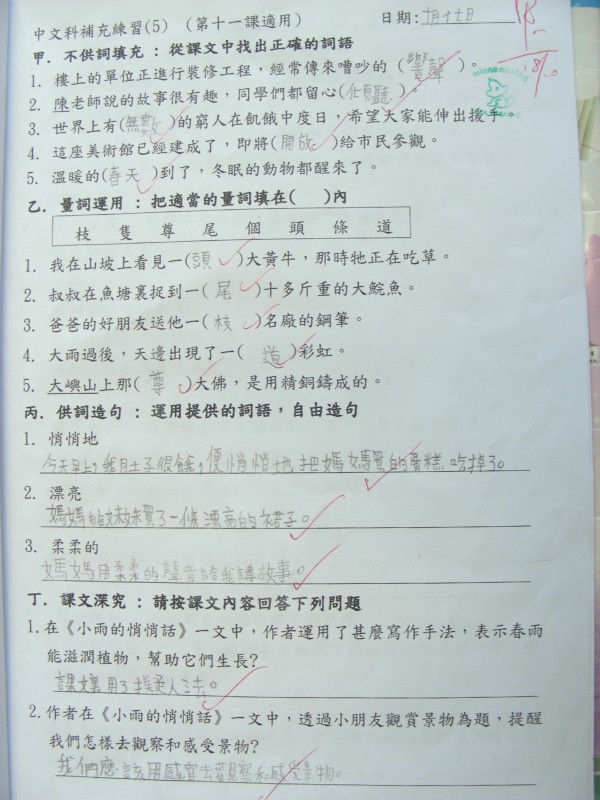 中文科補充練習(5) (第十一課適用) 日期:十月十七日
甲．不供詞填充：從課文中找出正確的詞語
1. 樓上的單位正進行裝修工程，經常傳來嘈吵的(響聲)。
2. 陳老師說的故事很有趣，同學們都留心(傾聽)。
3. 世界上有(無數)的窮人在飢餓中度日，希望大家能伸出援手。
4. 這座美術館已經建成了，即將(開放)給市民參觀。
5. 溫暖的(春天)到了，冬眠的動物都醒來了。
乙．量詞運用：把適當的量詞填在( )內
枝 隻 尊 尾 個 頭 條 道
1. 我在山坡上看見一(頭)大黃牛，那時牠正在吃草。
2. 叔叔在魚塘裏捉到一(尾)十多斤重的大鯇魚。
3. 爸爸的好朋友送他一(枝)名廠的鋼筆。
4. 大雨過後，天邊出現了一(道)彩虹。
5. 大嶼山上那(尊)大佛，是用精銅鑄成的。
丙．供詞造句：運用提供的詞語，自由造句
1. 悄悄地
今天早上，我肚子很餓，便悄悄地把媽媽買的蛋糕吃掉了。
2. 漂亮
媽媽給妹妹買了一條漂亮的裙子。
3. 柔柔的
媽媽用柔柔的聲音給我講故事。
丁．課文深究：請按課文內容回答下列問題
1. 在《小雨的悄悄話》一文中，作者運用了甚麼寫作手法，表示春雨
能滋潤植物，幫助它們生長?
課文裏用了擬人法。
2. 作者在《小雨的悄悄話》一文中，透過小朋友觀賞景物為題，提醒
我們怎樣去觀察和感受景物?
我們應該用感官去觀察和感受景物。